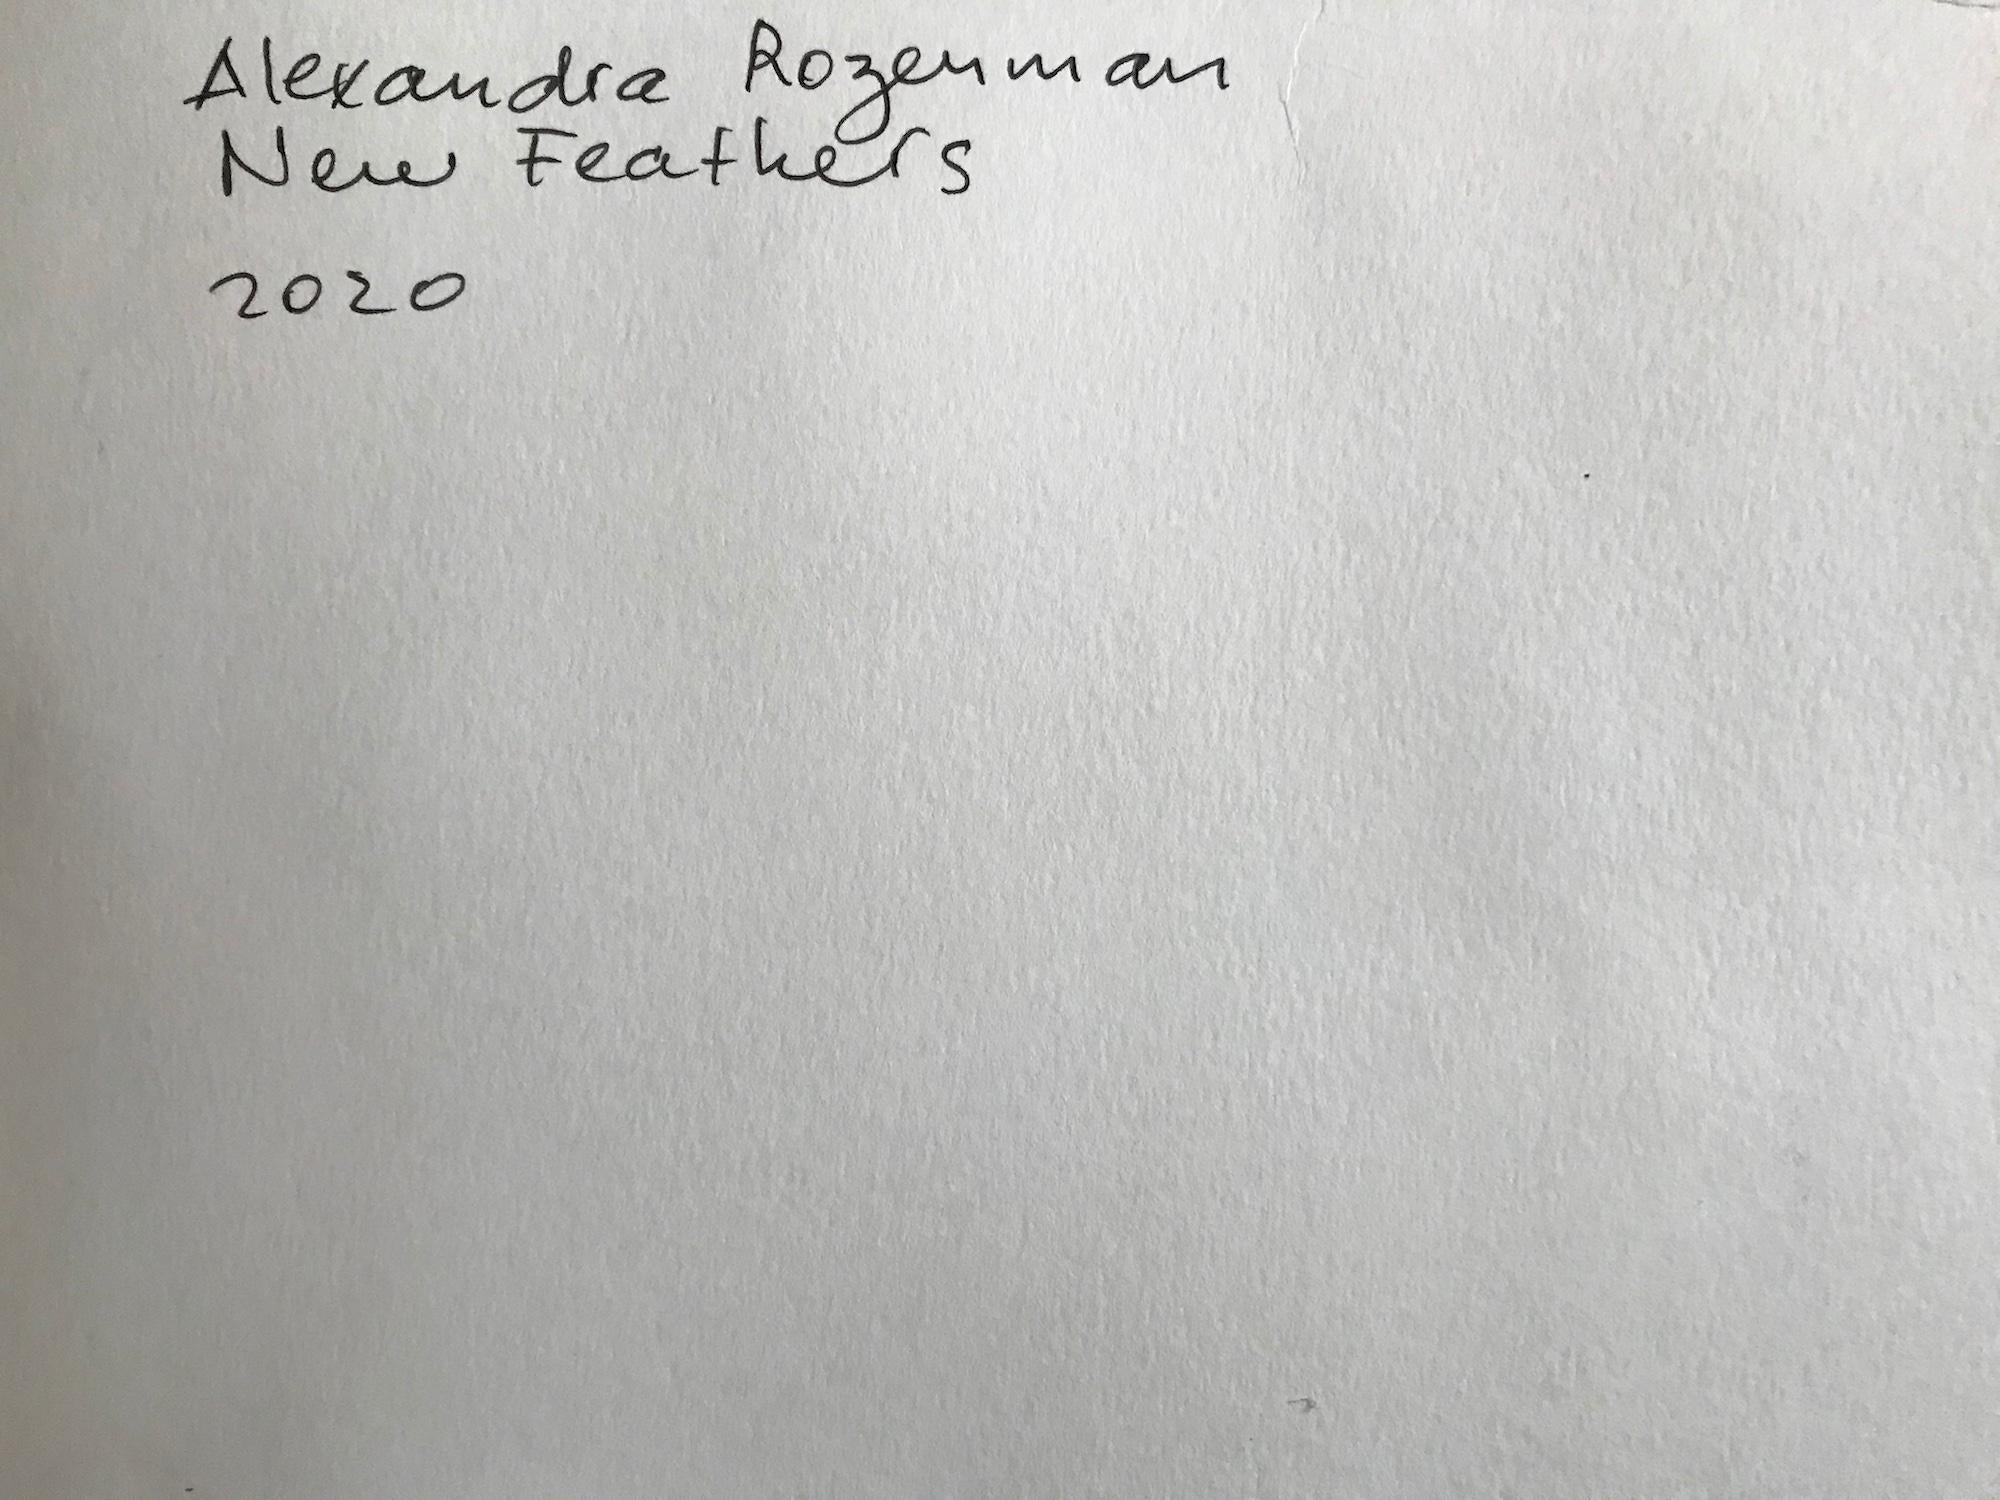 Alexandra Rozenman
New Feathers
2020